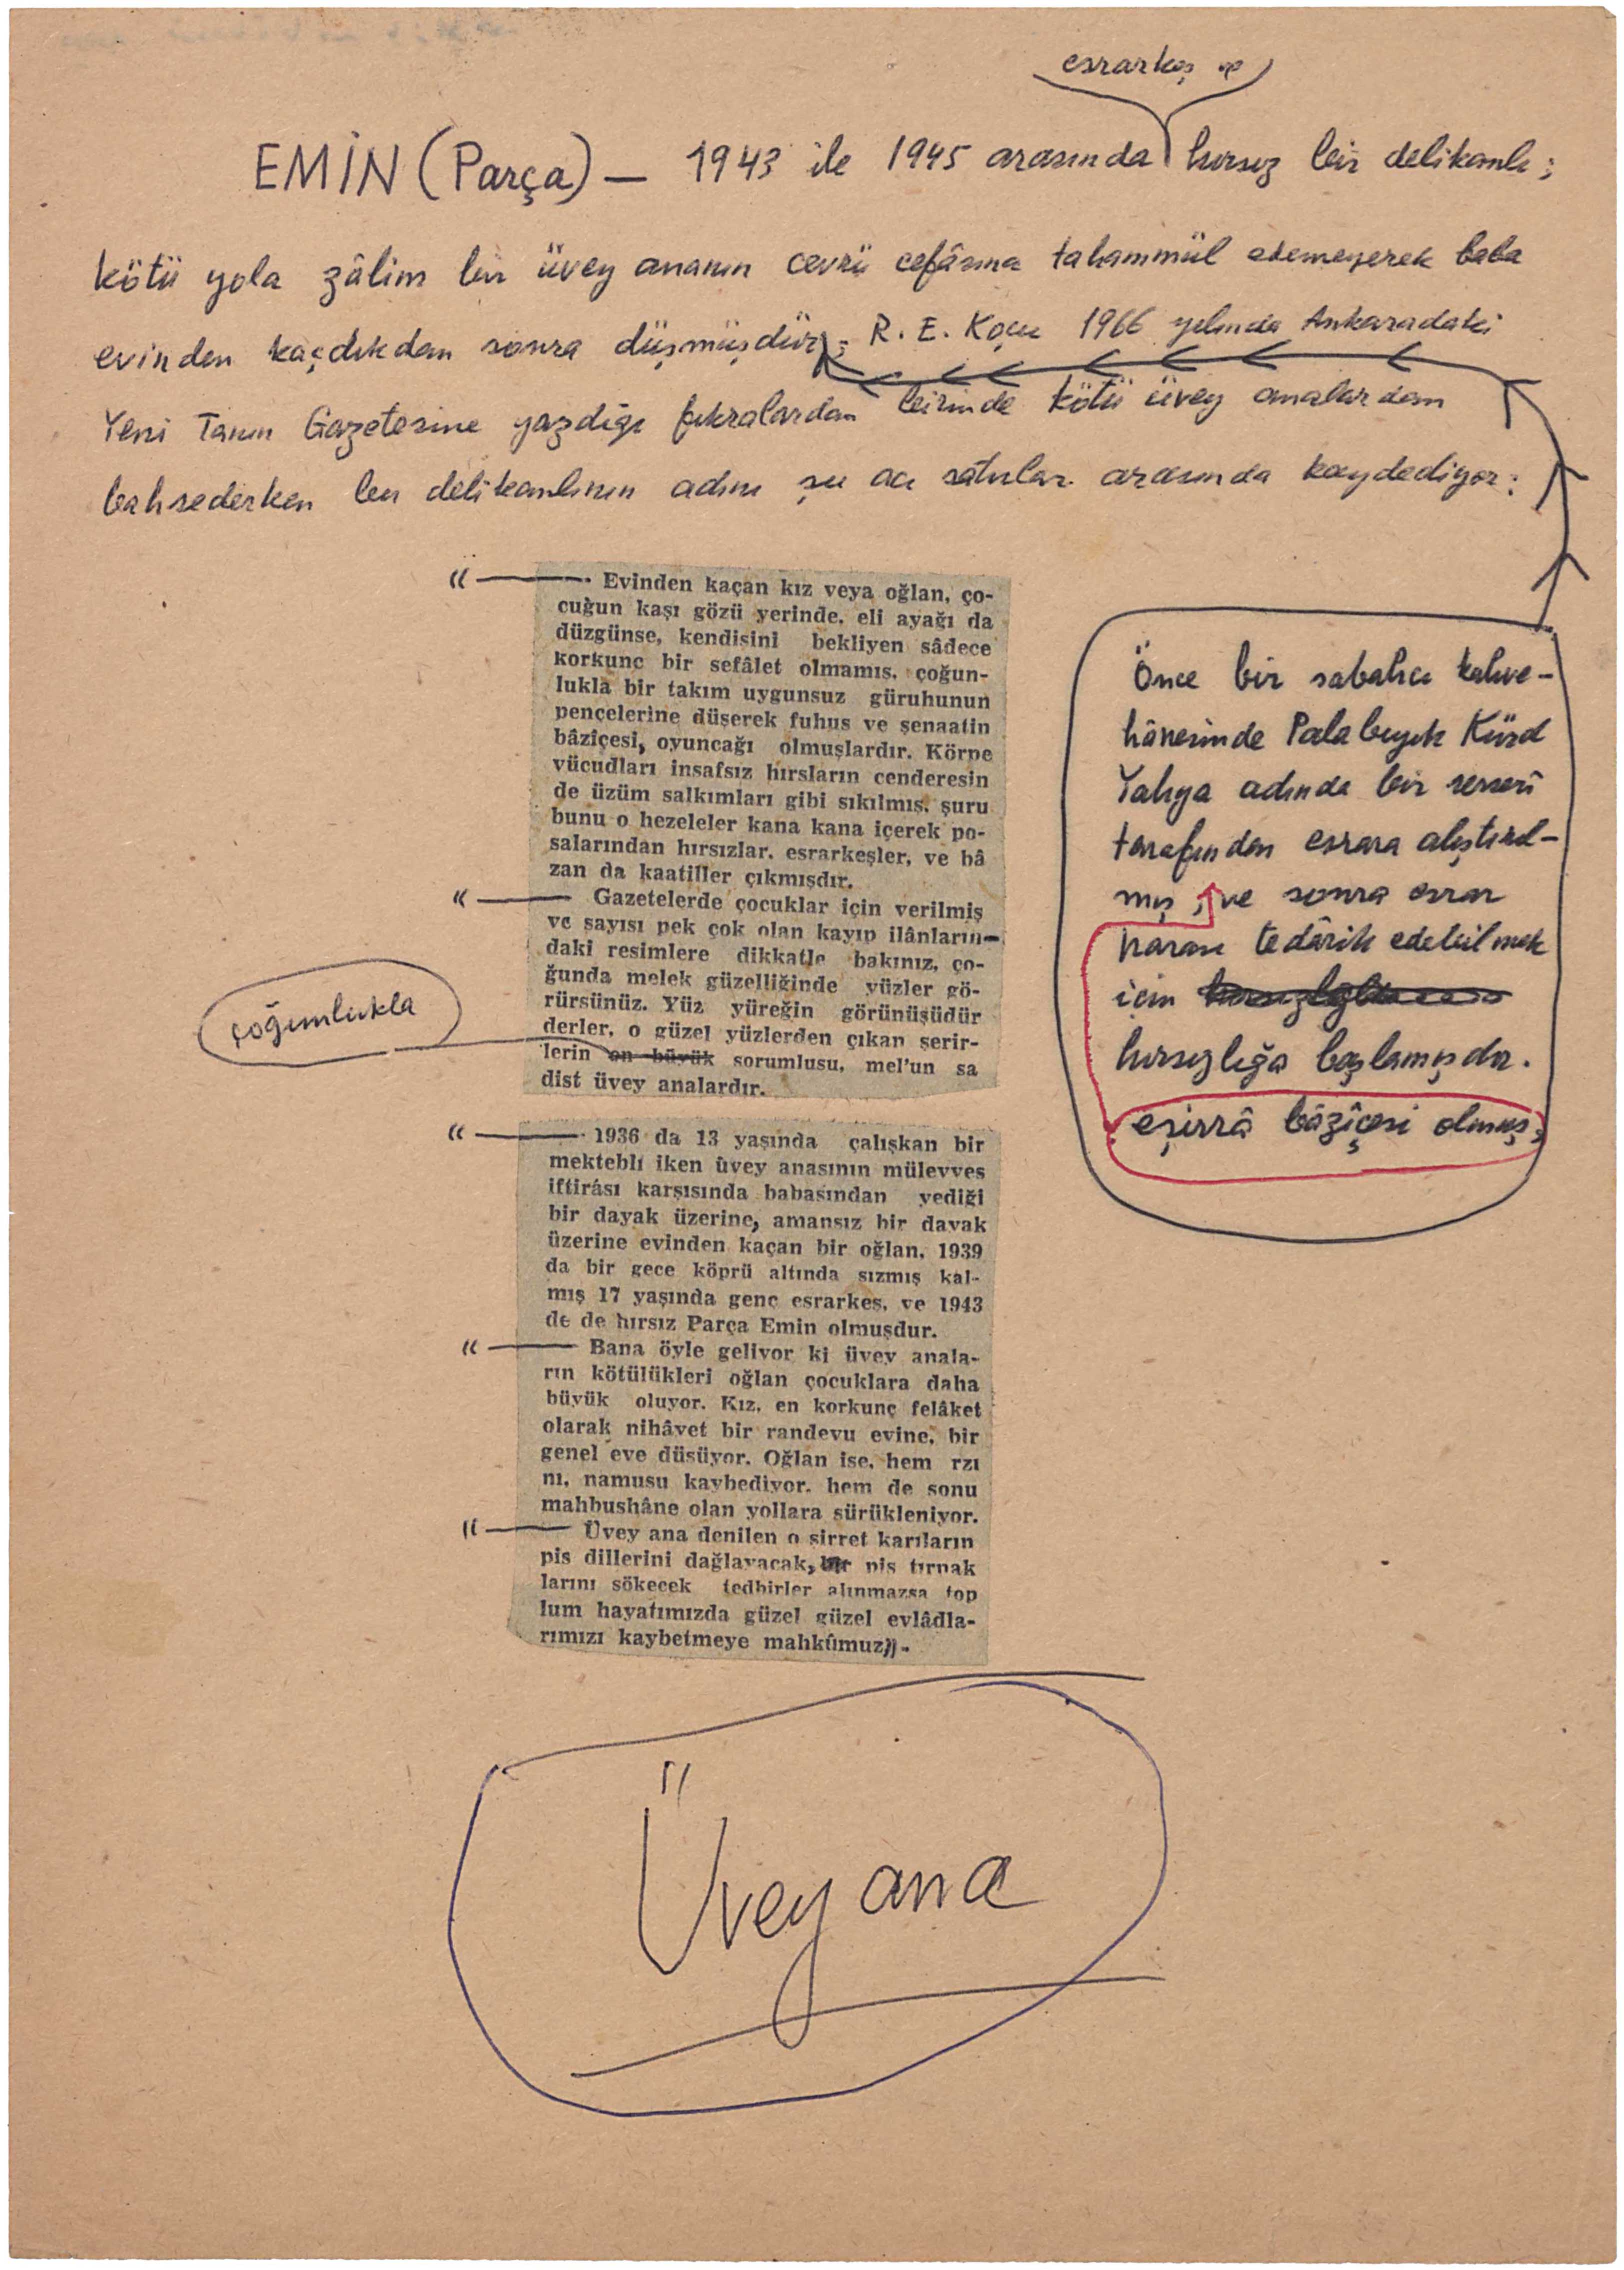 esrarkeş ve
EMİN (Parça) — 1943 ile 1945 arasında hırsız bir delikanlı;
kötü yola zâlim bir üvey ananın cevrü cefâsına tahammül edemeyerek baba
evinden kaçdıkdan sonra düşmüşdür; R. E. Koçu 1966 yılında Ankaradaki
Yeni Tanin Gazetesine yazdığı fıkralardan birinde kötü üvey analardan
bahsederken bu delikanlının adını şu acı satırlar arasında kaydediyor:
“ — Evinden kaçan kız veya oğlan, ço-
cuğun kaşı gözü yerinde, eli ayağı da
düzgünse, kendisini bekliyen sâdece
korkunc bir sefâlet olmamıs, çoğun-
lukla bir takım uygunsuz güruhunun
pençelerine düşerek fuhus ve şenaatin
bâziçesi, oyuncağı olmuşlardır. Körpe
vücudları insafsız hırsların cenderesin
de üzüm salkımları gibi sıkılmıs, şuru
bunu o hezeleler kana kana içerek po-
salarından hırsızlar, esrarkeşler, ve bâ
zan da kaatiller çıkmışdır.
“ — Gazetelerde çocuklar için verilmiş
ve sayısı pek çok olan kayıp ilânların-
daki resimlere dikkatle bakınız, ço-
ğunda melek güzelliğinde yüzler gö-
rürsünüz. Yüz yüreğin görünüşüdür
derler, o güzel yüzlerden çıkan şerir-
lerin en büyük sorumlusu, mel'un sa
dist üvey analardır.
çoğunlukla
“ — 1936 da 13 yaşında çalışkan bir
mektebli iken üvey anasının mülevves
iftirâsı karşısında babasından yediği
bir dayak üzerine, amansız bir dayak
üzerine evinden kaçan bir oğlan, 1939
da bir gece köprü altında sızmış kal-
mış 17 yaşında genc esrarkeş, ve 1943
de de hırsız Parça Emin olmuşdur.
“ — Bana öyle geliyor ki üvey anala-
rın kötülükleri oğlan çocuklara daha
büyük oluyor. Kız, en korkunç felâket
olarak nihâyet bir randevu evine, bir
genel eve düsüyor. Oğlan ise, hem rzı
nı, namusu kaybediyor, hem de sonu
mahbushâne olan yollara sürükleniyor.
“ — Üvey ana denilen o şirret karıların
pis dillerini dağlayacak, pis tırnak
larını sökecek tedbirler alınmazsa top
lum hayatımızda güzel güzel evlâdla-
rımızı kaybetmeye mahkûmuz)).
Önce bir sabahcı kahve-
hânesinde Palabıyık Kürd
Yahya adında bir serseri
tarafından esrara alıştırıl-
mış, ve sonra esrar
parası tedârik edebilmek
için
hırsızlığa başlamışdır.
eşirrâ bâzîçesi olmuş;
Üvey ana